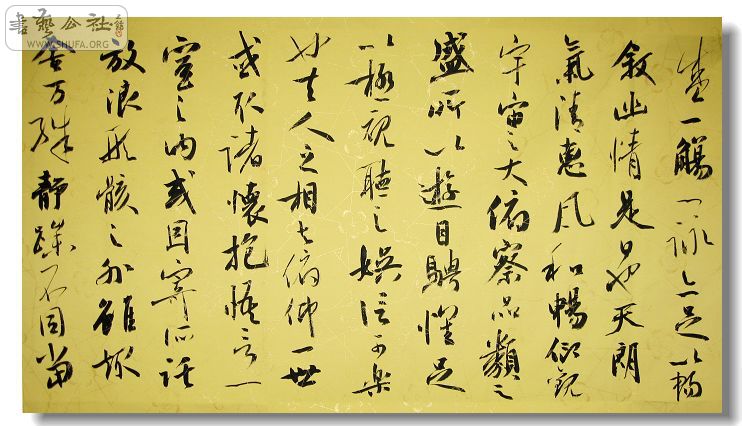 盛一觴一詠亦足以暢
敘幽情是日也天朗
氣清惠風和暢仰觀
宇宙之大俯察品類之
盛所以遊目騁懷足
以極視聽之娛信可樂
也夫人之相與俯仰一世
或取諸懷抱悟言一
室之內或因寄所託
放浪形骸之外雖趣
舍萬殊靜躁不同當
書藝公社
WWW.SHUFA.ORG